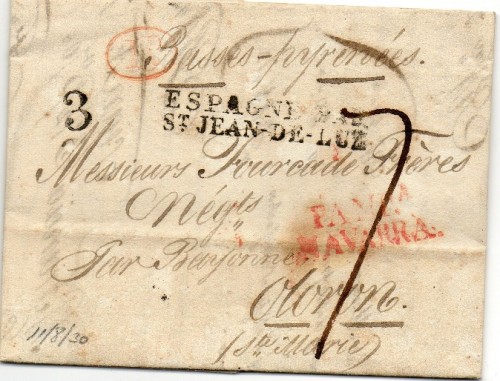 Basses-pyrenées.
3
ESPAGNE PAR
ST JEAN-DE-LUZ
Messieurs Fourcade Frères
Négts
PAMPA
NAVARRA.
Par Bayonne
Oloron.
(Ste Marie)
7
11/8/30